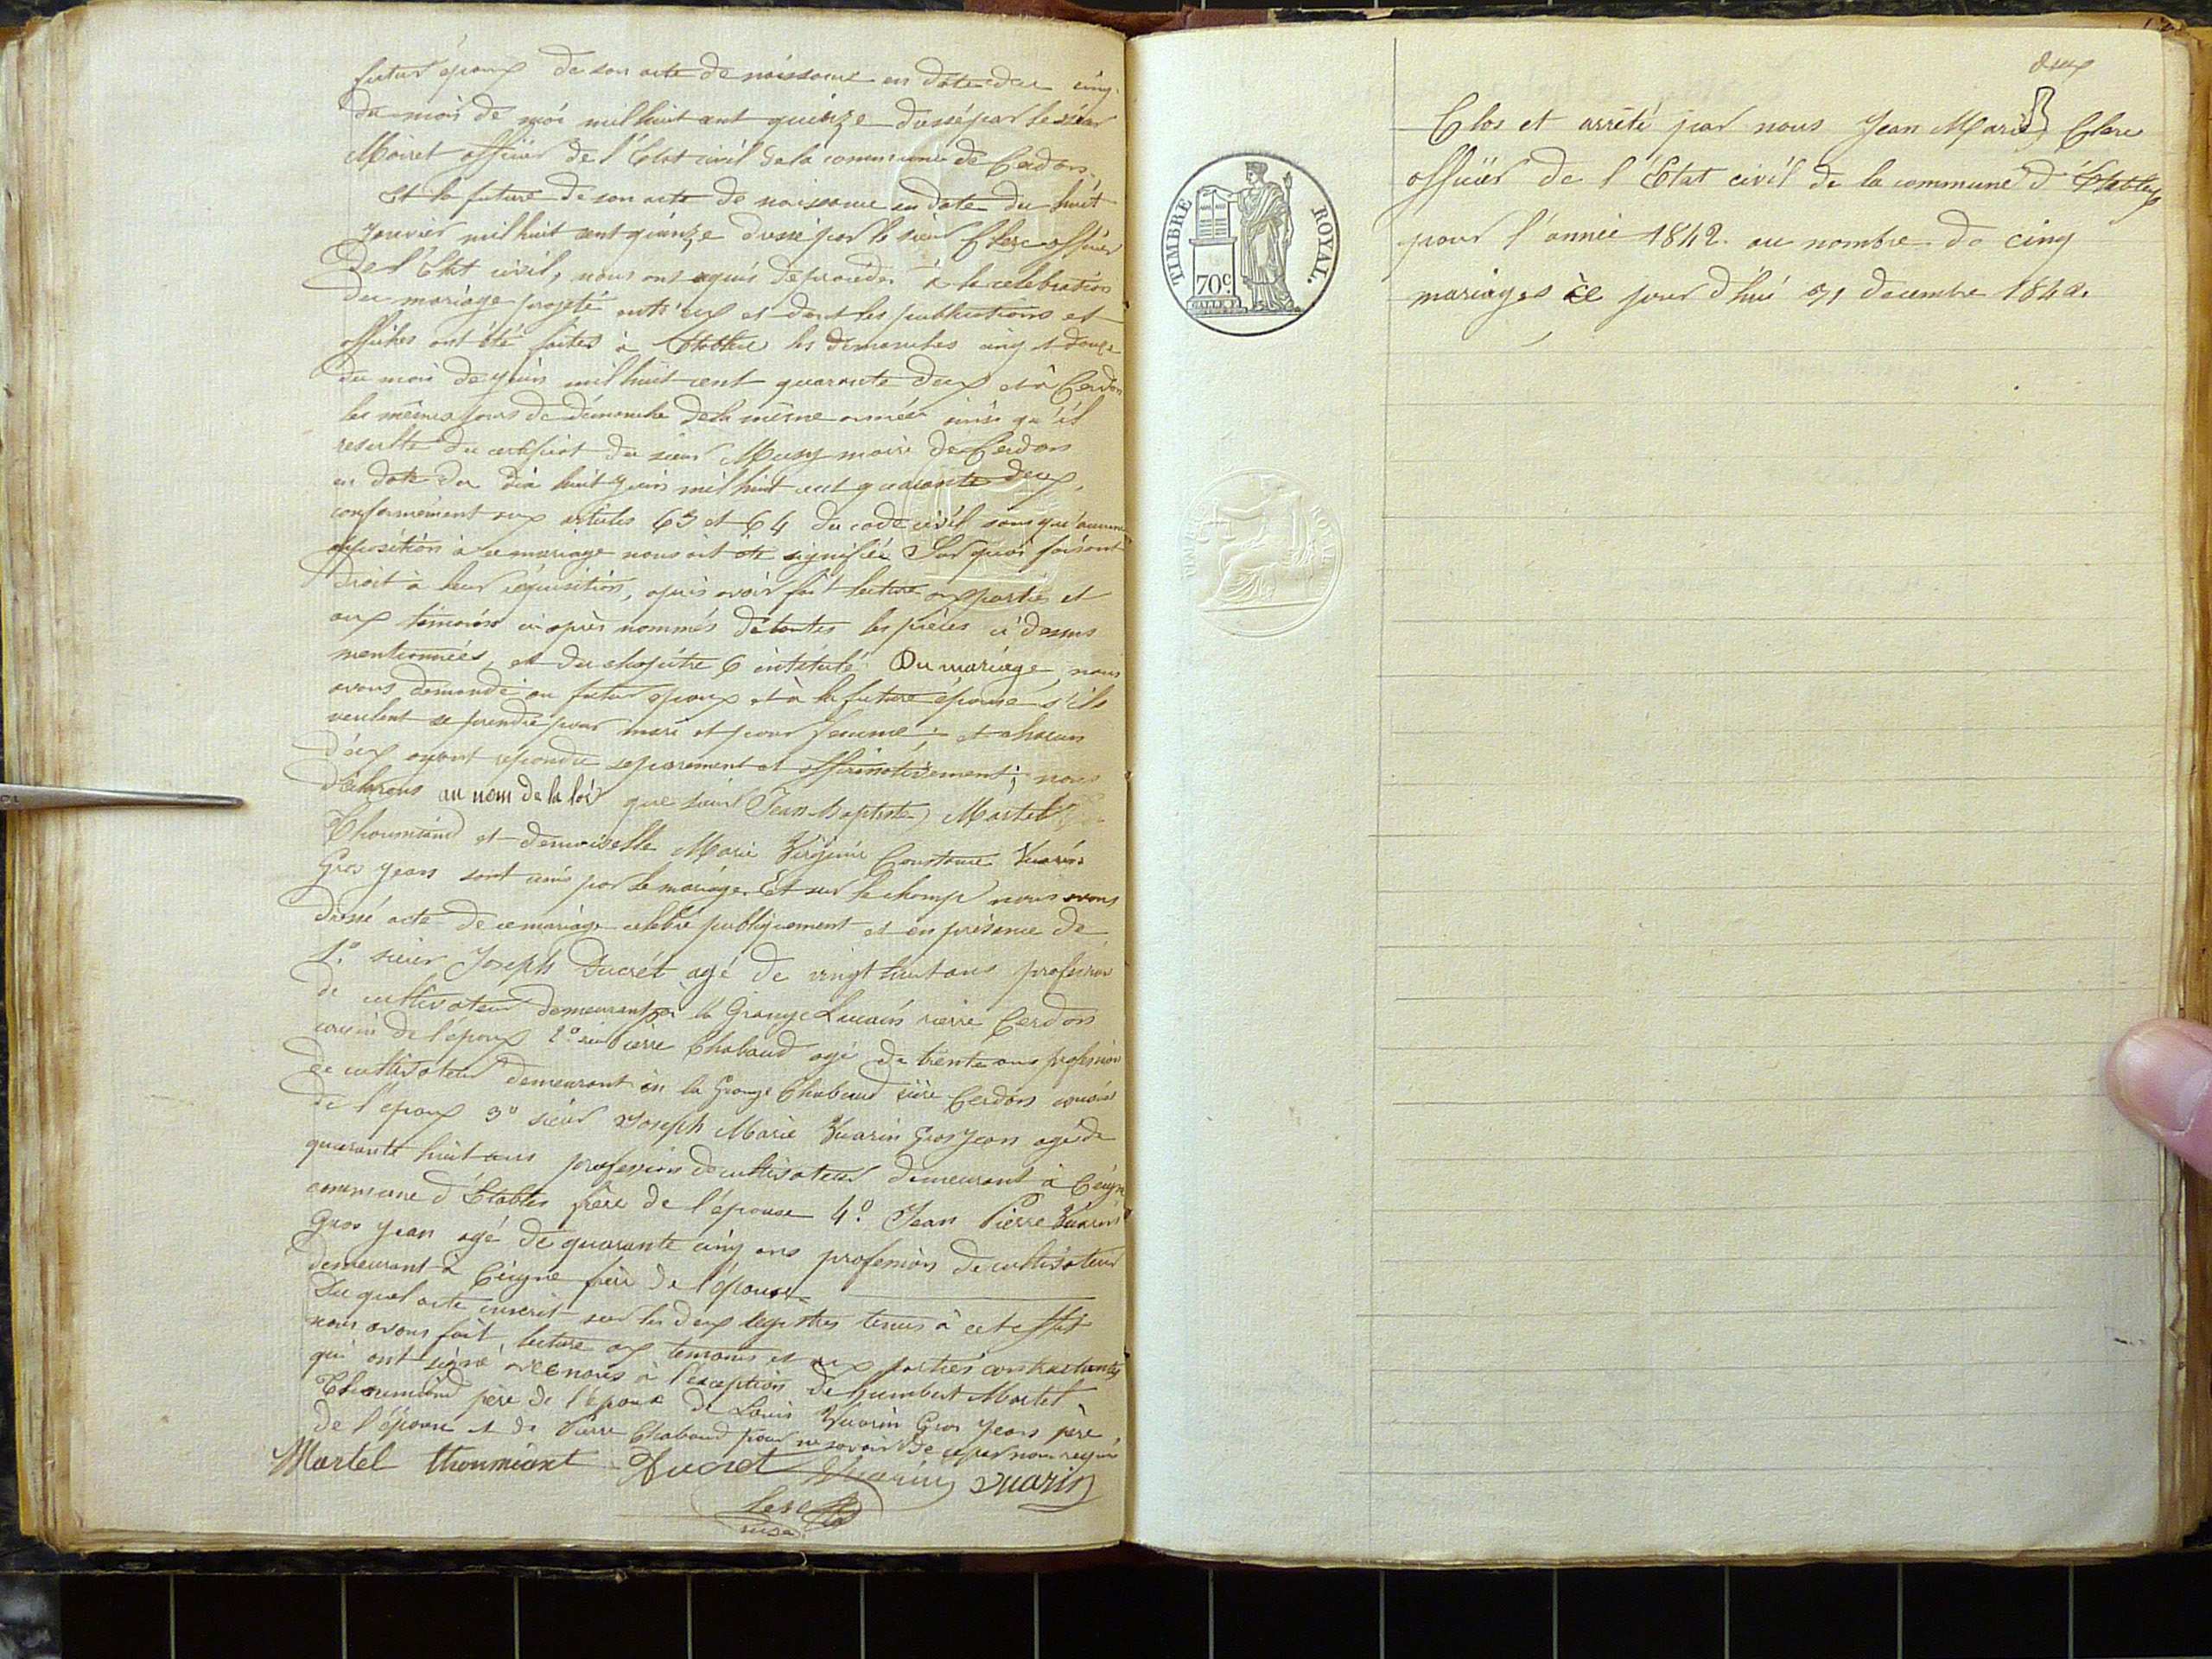 futur époux de son acte de naissance en date du cinq
du mois de mai mil huit cent quinze dressé par le sieur
Moiret officier de l'Etat civil de la commune de Cerdon.
Et la future de son acte de naissance en date du huit
janvier mil huit cent quinze dressé par le sieur Clerc officier
de l'Etat civil, nous ont requis de procéder à la celebration
du mariage projeté entr'eux et dont les publications et
affiches ont été faites à Etables les dimanches cinq et douze
du mois de juin mil huit cent quarante deux et à Cerdon
les mêmes jours de dimanche de la même année ainsi qu'il
resulte du certificat du sieur Musy maire de Cerdon
en date du dix huit juin mil huit cent quarante deux,
conformément aux articles 63 et 64 du code civil sans qu'aucune
opposition à ce mariage nous ait été signifiée Sur quoi faisant
droit à leur réquisition, après avoir fait lecture aux parties et
aux témoins ci après nommés de toutes les pièces ci dessus
mentionnées, et du chapitre 6 intitulé Du mariage, nous
avons demandé au futur époux et à la future épouse s'ils
veulent se prendre pour mari et pour femme; et chacun
d'eux ayant répondu séparement et affirmativement; nous
déclarons au nom de la loi que sieur Jean Baptiste Martel
Thoumiand et demoiselle Marie Virginie Constance Vuarin
Gros Jean sont unis par le mariage. Et sur le champ nous avons
dressé acte de ce mariage celebré publiquement et en présence de
1.º sieur Joseph Ducrêt agé de vingt huit ans profession
de cultivateur demeurant à la Grange Lucain rière Cerdon
cousin de l'époux 2º sieur Pierre Chabaud agé de trente ans profession
de cultivateur demeurant en la Grange Chabaud rière Cerdon cousin
de l'époux 3º sieur Joseph Marie Vuarin Gros Jean agé de
quarante huit ans profession de cultivateur demeurant à Ceigne
commune d'Etables frère de l'épouse 4.º Jean Pierre Vuarin
Gros Jean agé de quarante cinq ans profession de cultivateur
demeurant à Ceigne frère de l'épouse
Duquel acte inscrit sur les deux registres tenus à cet effet
nous avons fait lecture aux temoins et aux parties contractantes
qui ont signé avec nous à l'exception de humbert Martel
Thoumiand père de l'époux de Louis Vuarin Gros Jean père
de l'épouse et de Pierre Chabaud pour ne savoir de ce par nous requis
Martel thoumiant Ducret Vuarin Vuarin
Clerc
deux
Clos et arrêté par nous Jean Marie Clerc
officier de l'Etat civil de la commune d'Etables
pour l'année 1842. au nombre de cinq
mariages ce jour d'hui 31 decembre 1842.
TIMBRE ROYAL.
70c.